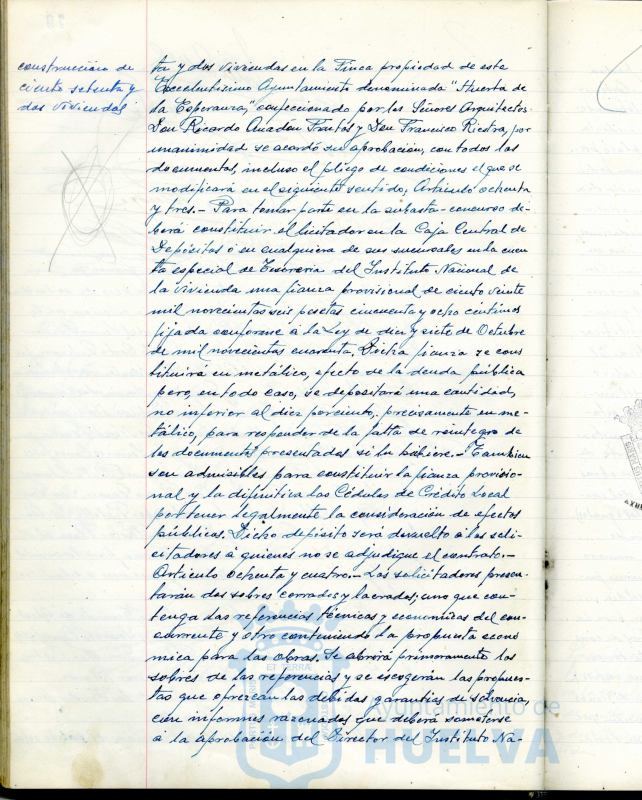 construccion de
ciento setenta y
dos viviendas
ta y dos viviendas en la Finca propiedad de este
Excelentisimo Ayuntamiento denominada "Huerta de
la Esperanza," confeccionado por los Señores Arquitectos
Don Ricardo Anadon Frutos y Don Francisco Riestra, por
unanimidad se acordó su aprobación, con todos los
documentos, incluso el pliego de condiciones el que se
modificará en el siguiente sentido, Artículo ochenta
y tres.- Para tomar parte en la subasta-concurso de-
berá constituir el licitador en la Caja Central de
Depósitos ó en cualquiera de sus sucursales en la cuen
ta especial de Tesoreria del Instituto Nacional de
la Vivienda una fianza provisional de ciento veinte
mil novecientas seis pesetas cincuenta y ocho centimos
fijada conforme á la Ley de diez y siete de Octubre
de mil novecientos cuarenta, Dicha fianza se cons
tituirá en metálico, efecto de la deuda pública
pero, en todo caso, se depositará una cantidad,
no inferior al diez por ciento, precisamente en me-
tálico, para responder de la falta de reintegro de
los documentos presentados si la hubiere.- Tambien
son admisibles para constituir la fianza provisio-
nal y la difinitiva las Cédulas de Crédito Local
por tener legalmente la consideración de efectos
públicos. Dicho depósito será devuelto á los soli-
citadores á quienes no se adjudique el contrato.-
Artículo ochenta y cuatro.- Los solicitadores presen-
tarán dos sobres cerrados y lacrados; uno que con-
tenga las referencias técnicas y economicas del con-
currente y otro conteniendo la propuesta econó
mica para las obras. Se abrirá primeramente los
sobres de las referencias y se escogerán las propues-
tas que ofrezcan las debidas garantias de solvencia,
con informes razonados que deberá someterse
á la aprobación del Director del Instituto Na-
Ayuntamiento de
HUELVA